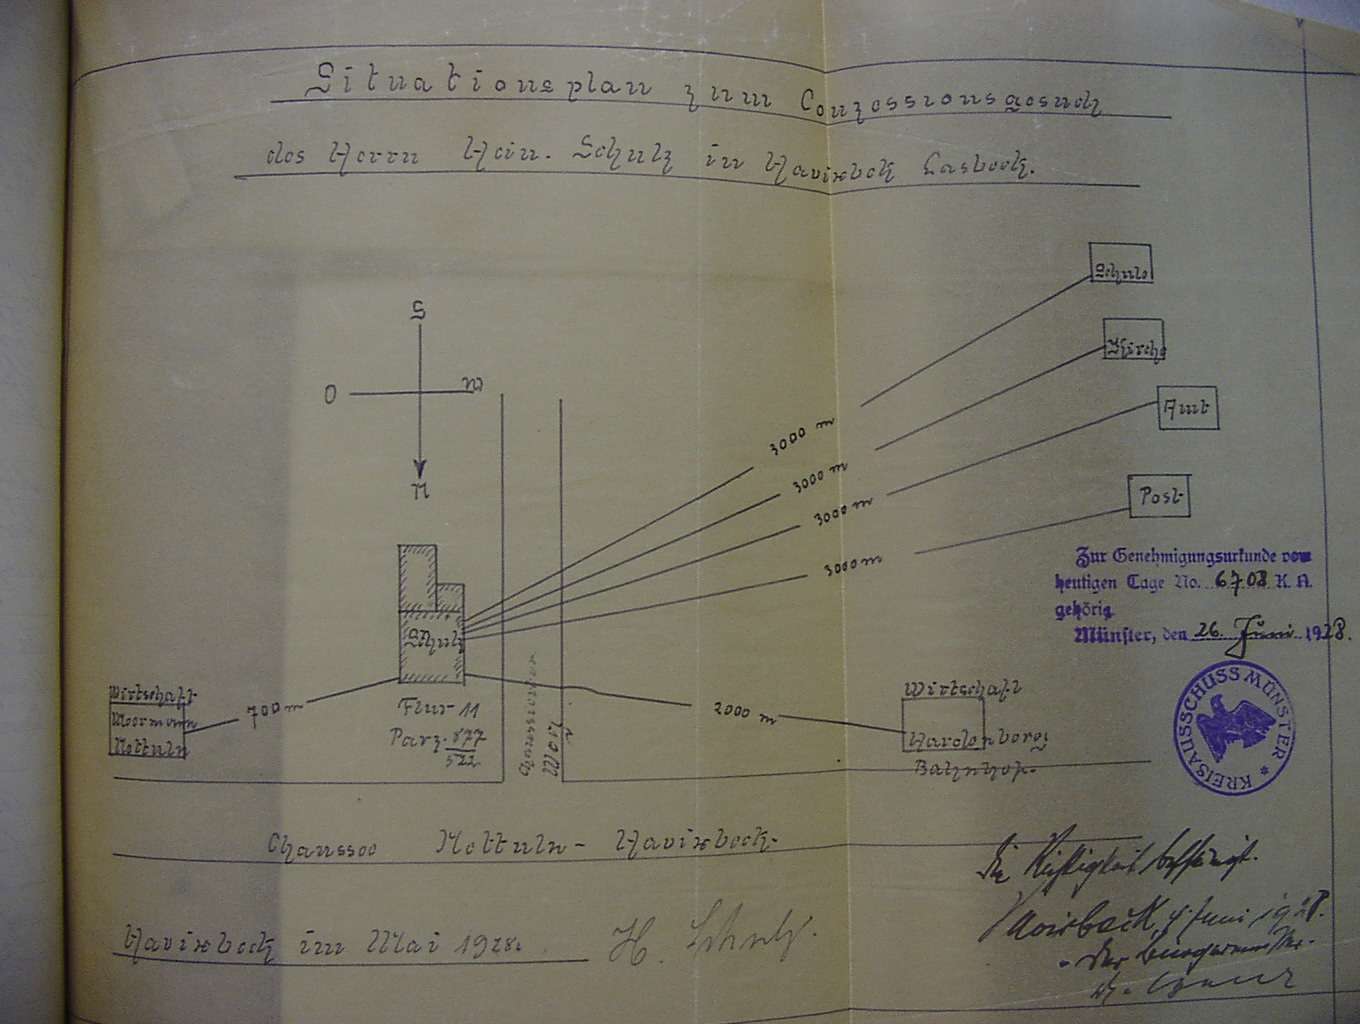 Situationsplan zum Conzessionsgesuch
des Herrn Hein. Schulz in Havixbeck Lasbeck.
S
O
W
N
Schule
Kirche
Amt
Post
3000 m
3000 m
3000 m
3000 m
Zur Genehmigungsurkunde vom
heutigen Tage No. 6708 K. A.
gehörig
Münster, den 26. Juni 1928.
KREISAUSSCHUSS MÜNSTER
Schulz
Flur 11
Parz. 577/522
Wirtschaft
Moormann
Nottuln
700 m
2000 m
Wirtschaft
Hardenberg
Bahnhof.
Chaussee
Chaussee Nottuln - Havixbeck.
Havixbeck im Mai 1928.
H. Schulz.
Die Richtigkeit bescheinigt.
Havixbeck, 4 Juni 1928.
Der Bürgermeister.